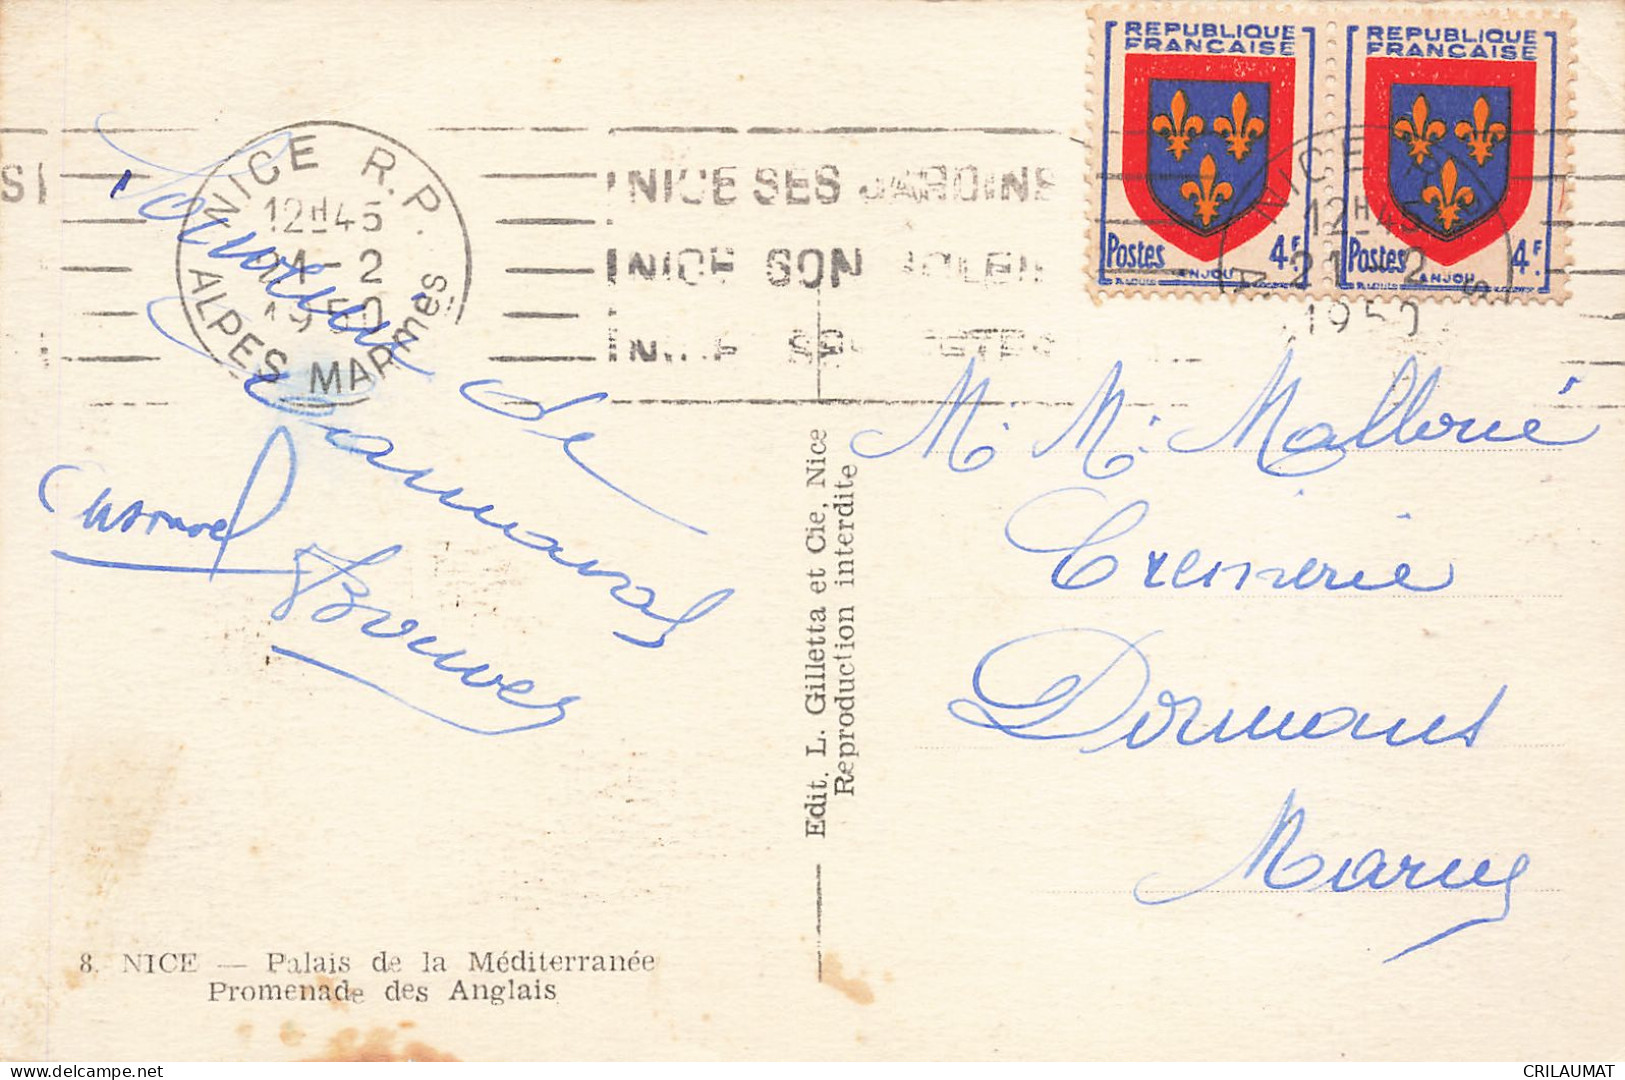 REPUBLIQUE
FRANÇAISE
Postes 4F.
ANJOU
REPUBLIQUE
FRANÇAISE
Postes 4F.
ANJOU
NICE R.P.
12H45
21-2
1950
ALPES MARmes
NICE SES JARDINS
NICE SON SOLEIL
NICE
NICE
12H45
21-2
1950
Souvenir de
Carnaval
M. M. Mallorié
Cremerie
Dormans
Marne
Edit. L. Gilletta et Cie, Nice
Reproduction interdite
8. NICE — Palais de la Méditerranée
Promenade des Anglais
delcampe.net
CRILAUMAT